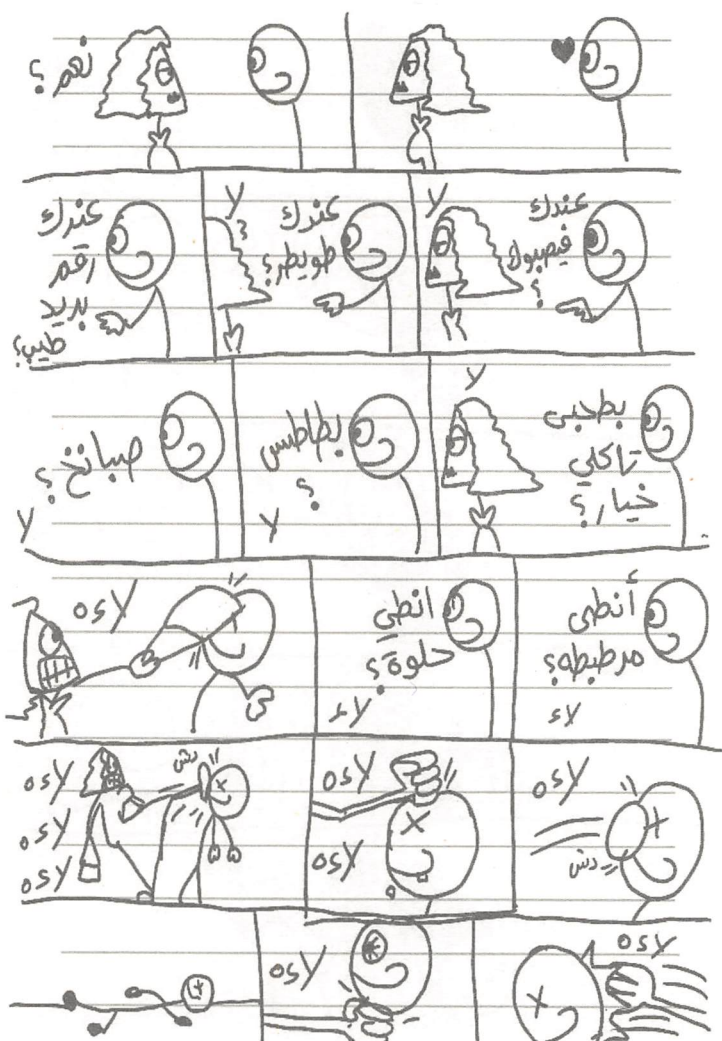 نعم ؟
عندك
فيصبوك
؟
لا
عندك
طويطر؟
لا
عندك
رقم
بريد
طيب؟
بطحبي
تاكلي
خيار؟
لا
بطاطس
؟
لا
صبانخ؟
لا
أنطي
مرطبطه؟
لاء
انطي
حلوة؟
لاء
لاءه
لاءه
دش
لاءه
لاءه
دش
لاءه
لاءه
لاءه
لاءه
لاءه